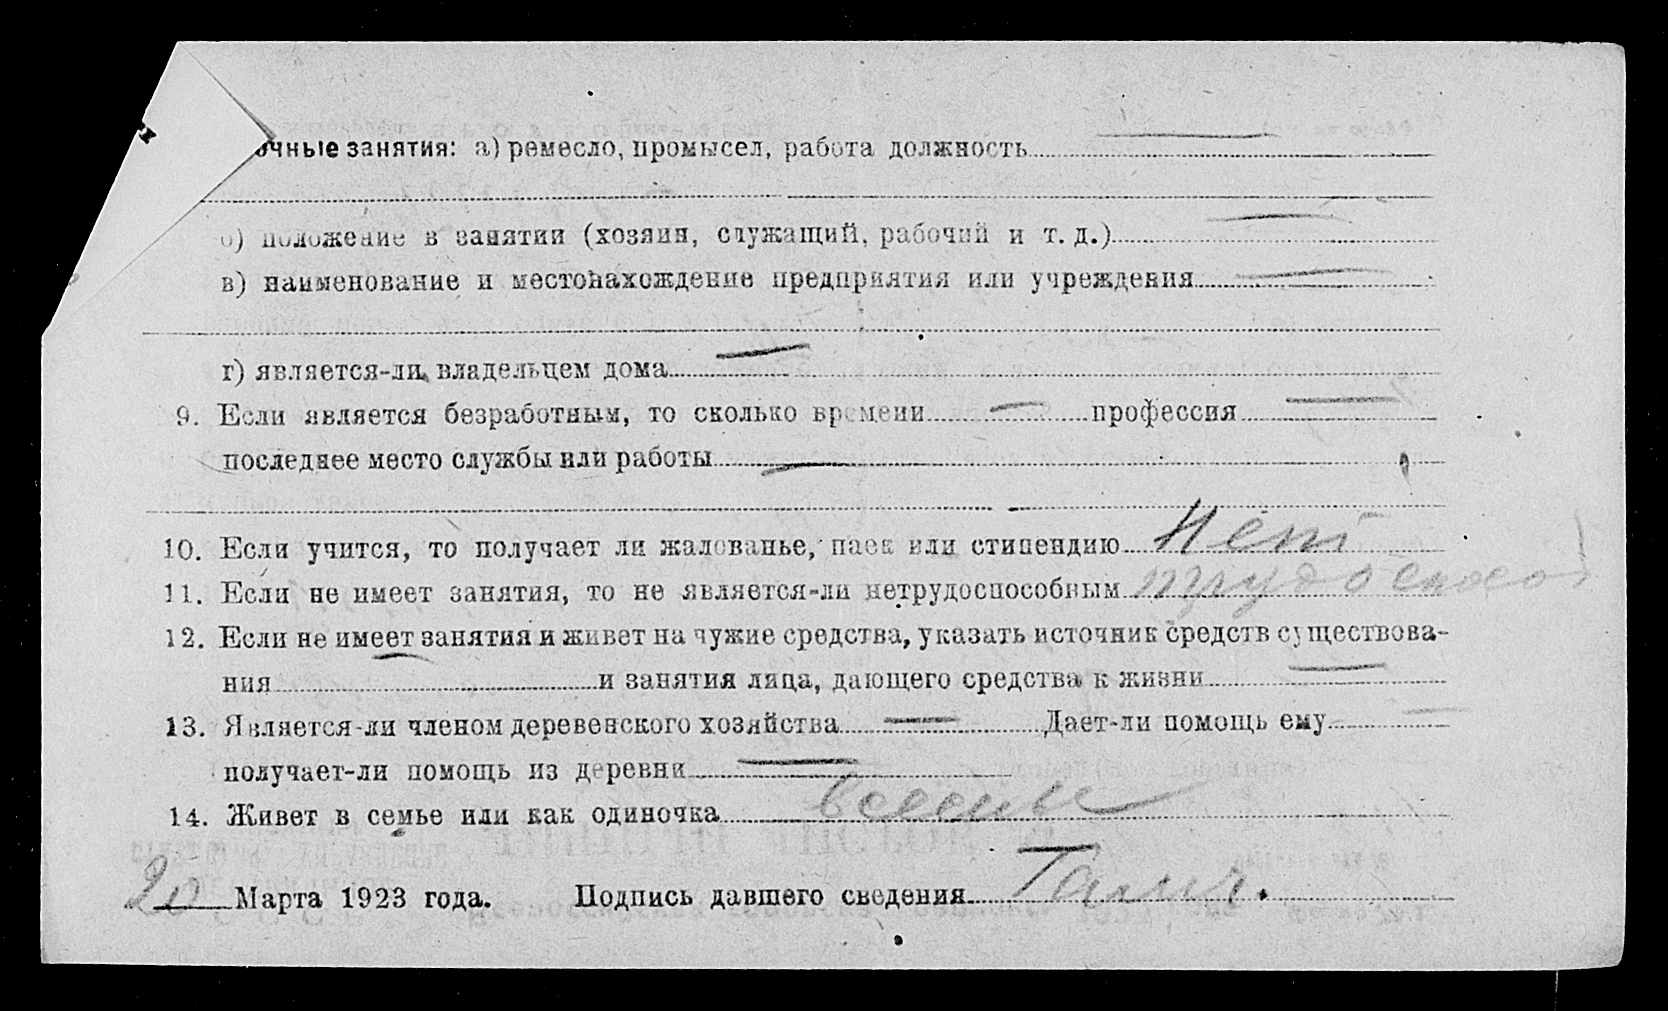 очные занятия: а) ремесло, промысел, работа должность
б) положение в занятии (хозяин, служащий, рабочий и т. д.)
в) наименование и местонахождение предприятия или учреждения
г) является-ли владельцем дома
9. Если является безработным, то сколько времени — профессия —
последнее место службы или работы —
10. Если учится, то получает ли жалованье, паек или стипендию Нет
11. Если не имеет занятия, то не является-ли нетрудоспособным трудоспособ
12. Если не имеет занятия и живет на чужие средства, указать источник средств существова-
ния — и занятия лица, дающего средства к жизни —
13. Является-ли членом деревенского хозяйства — Дает-ли помощь ему —
получает-ли помощь из деревни —
14. Живет в семье или как одиночка в семье
20 Марта 1923 года. Подпись давшего сведения